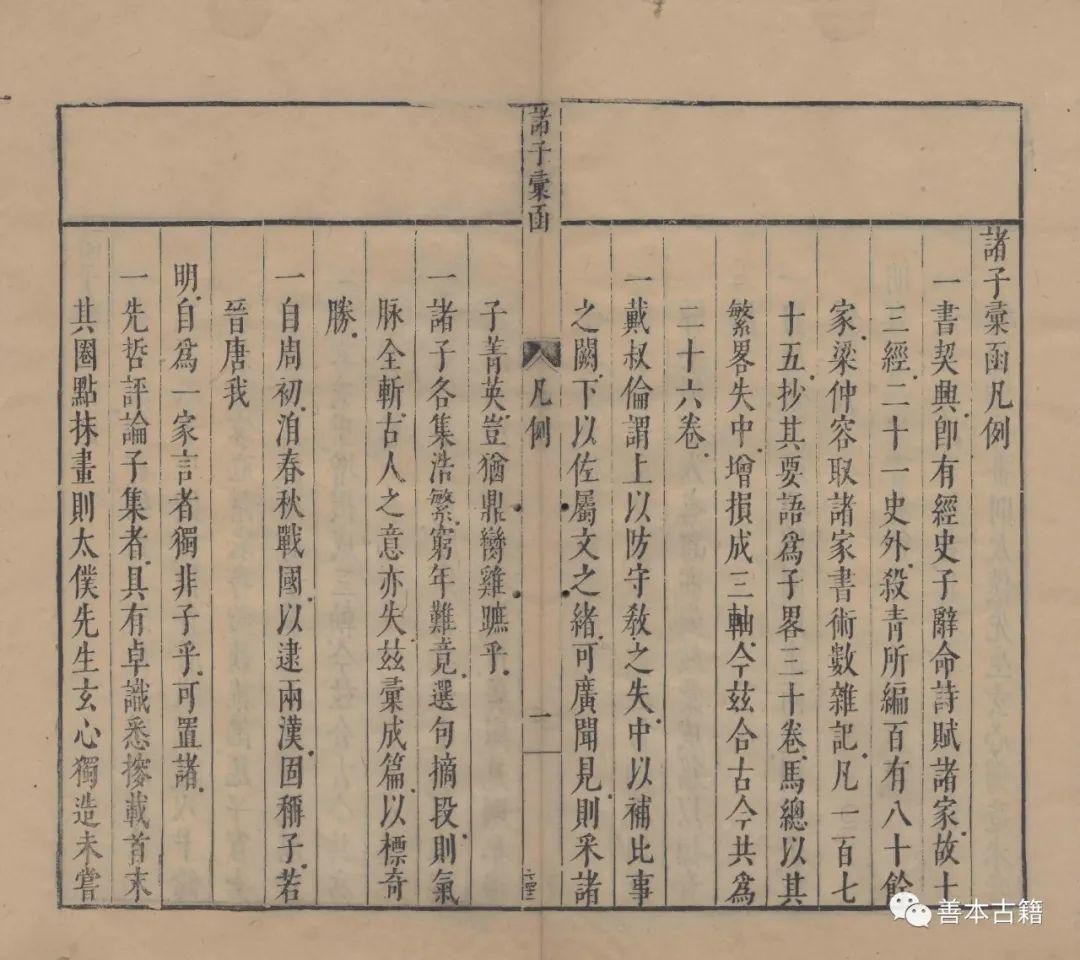 諸子彚函凡例
一書契興卽有經史子辭命詩賦諸家故十
三經二十一史外殺青所編百有八十餘
家梁仲容取諸家書術數雜記凡一百七
十五抄其要語爲子畧三十卷馬總以其
繁畧失中增損成三軸今茲合古今共爲
二十六卷
一戴叔倫謂上以防守敎之失中以補比事
之闕下以佐屬文之緒可廣聞見則采諸
諸子彚函
凡例
一
子菁英豈猶鼎臠雞蹠乎
一諸子各集浩繁窮年難竟選句摘段則氣
脉全斬古人之意亦失茲彚成篇以標奇
勝
一自周初洎春秋戰國以逮兩漢固稱子若
晉唐我
明自爲一家言者獨非子乎可置諸
一先哲評論子集者具有卓識悉摉載首末
其圈點抹畫則太僕先生玄心獨造未嘗
善本古籍